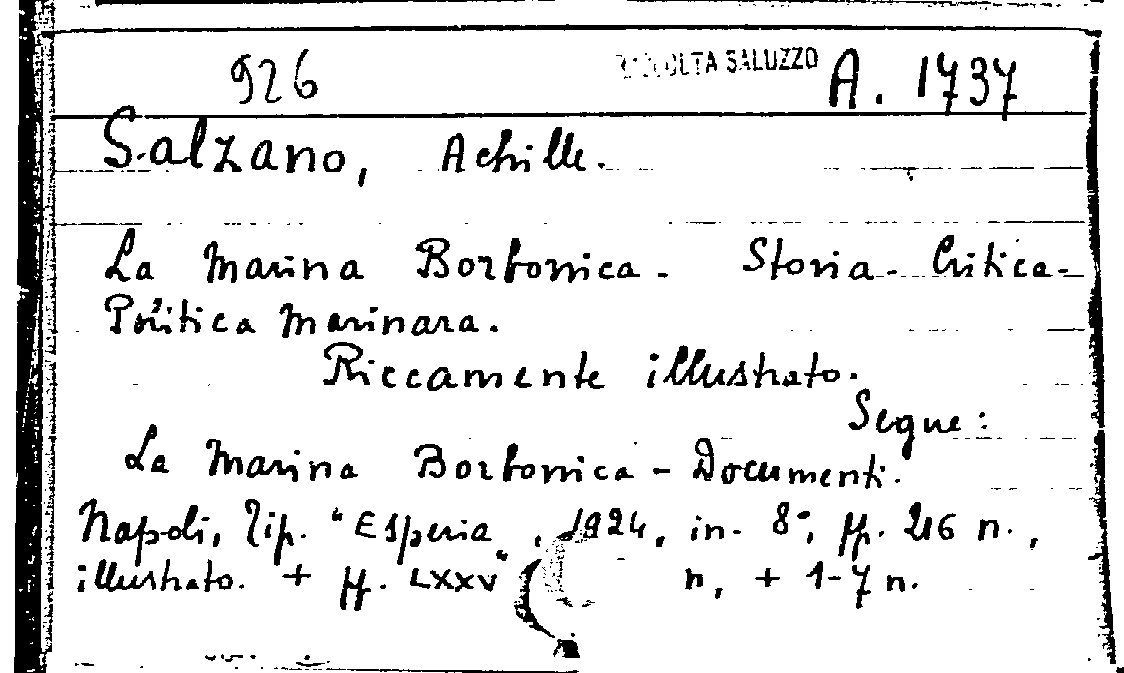 926 RACCOLTA SALUZZO A. 1737
Salzano, Achille.
La Marina Borbonica - Storia - Critica -
Politica Marinara.
Riccamente illustrato.
Segue:
La Marina Borbonica - Documenti.
Napoli, Tip. "Esperia", 1924, in-8°, pp. 216 n.,
illustrato. + pp. LXXV n, + 1-7 n.